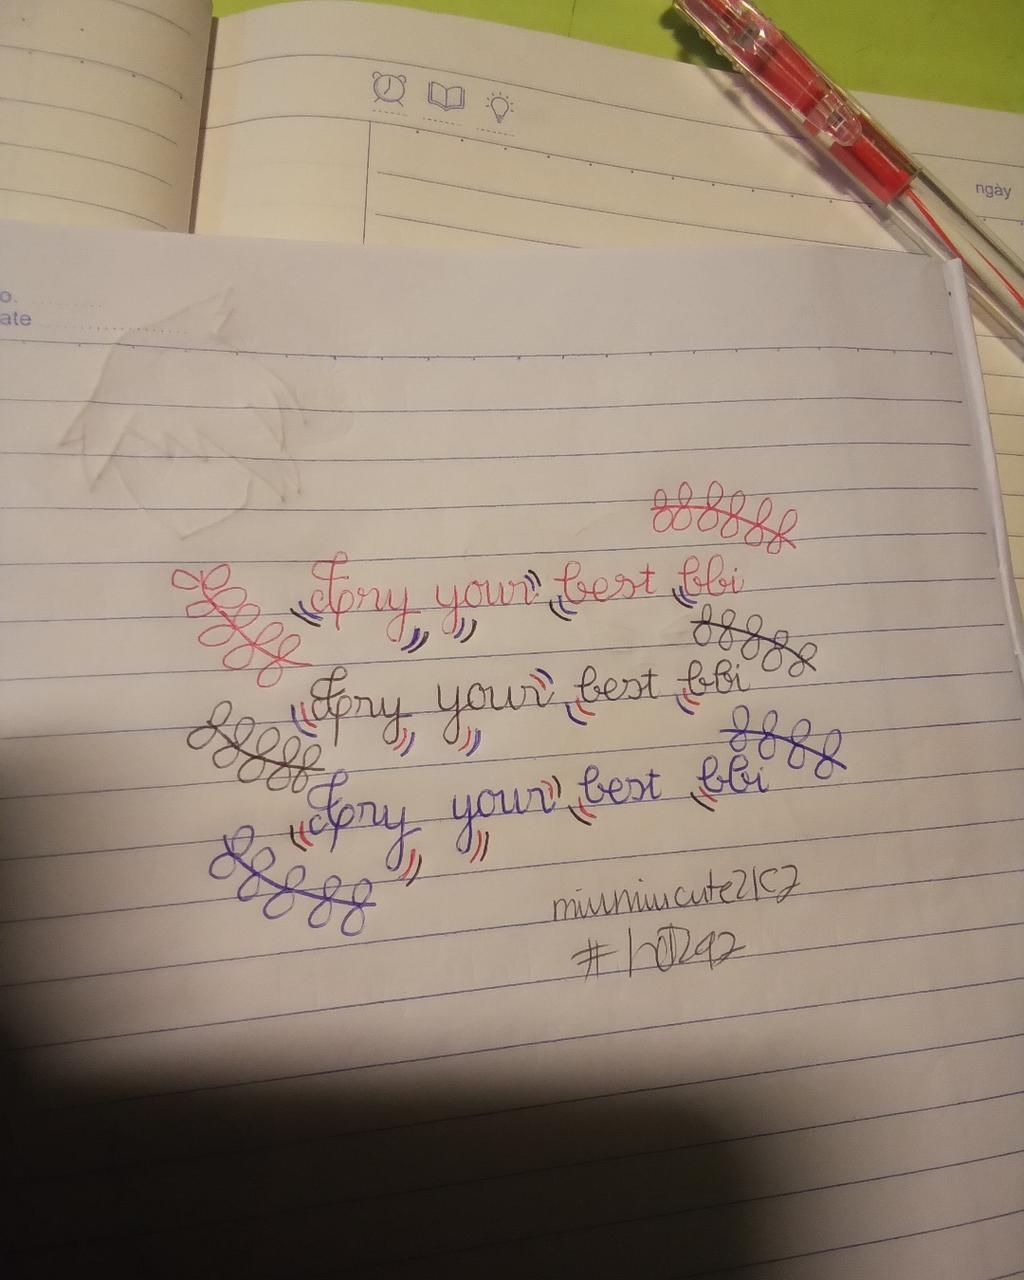 ngày
o.
ate
try your best bbi
try your best bbi
try your best bbi
miumiucute2K2